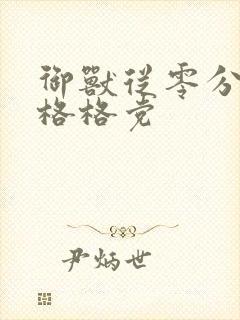 御獸從零分
格格党
尹炳世